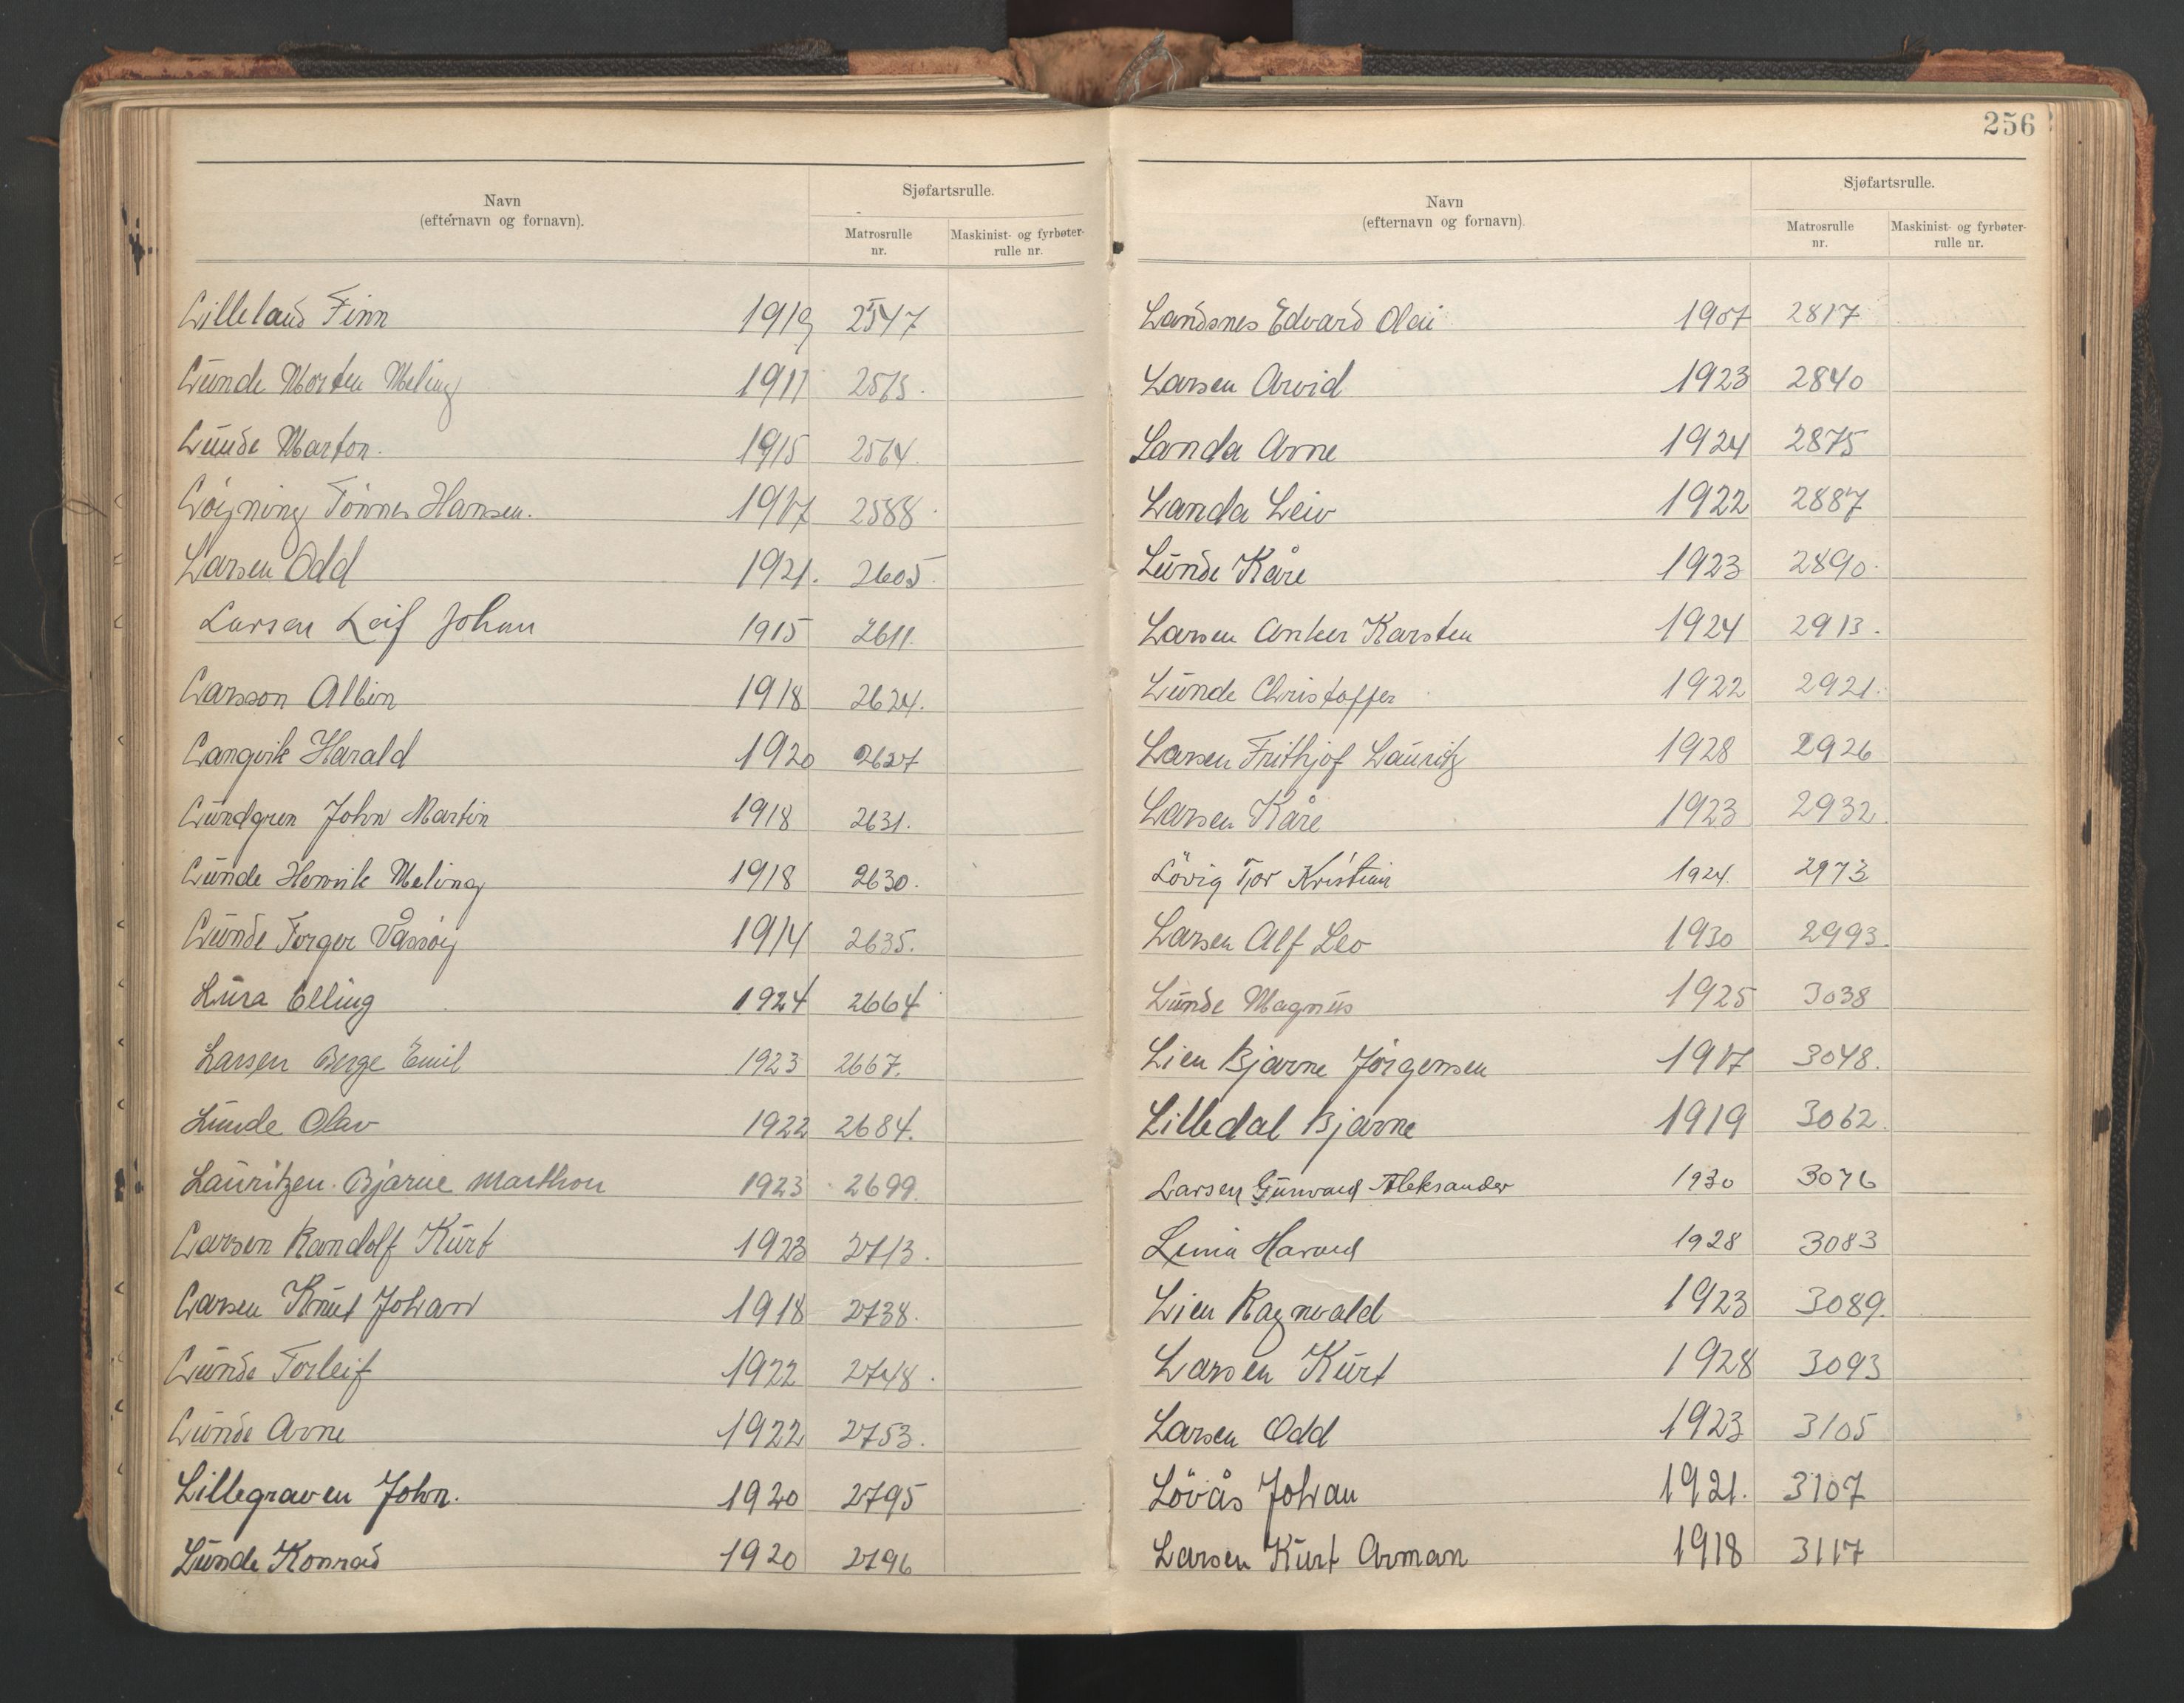 256
Navn
(efternavn og fornavn).
Sjøfartsrulle.
Matrosrulle
nr.
Maskinist- og fyrbøter-
rulle nr.
Lilleland Finn 1919 2547
Lunde Morten Meling 1911
Lunde Marton. 1915 2564.
Löyning Tönnes Hansen. 1917 2588.
Larsen Odd 1921. 2605.
Larsen Leif Johan 1915 2611.
Larsson Albin 1918 2624.
Langvik Harald 1920 2627
Lundgren John Martin 1918 2631.
Lunde Henrik Meling 1918 2630.
Lunde Torger Vassöy 1914 2635.
Lura Elling 1924 2664
Larsen Berge Emil 1923 2667.
Lunde Olav 1922 2684.
Lauritzen Bjarne Marthon 1923 2699.
Larsen Randolf Kurt 1923 2713.
Larsen Knut Johan 1918 2738.
Lunde Torleif 1922 2748.
Lunde Arne 1922 2753.
Lillegraven John. 1920 2795
Lunde Konrad 1920 2796
Navn
(efternavn og fornavn).
Sjøfartsrulle.
Matrosrulle
nr.
Maskinist- og fyrbøter-
rulle nr.
Landsnes Edvard Olai 1907 2817
Larsen Arvid 1923 2840
Landa Arne 1924 2875
Landa Leiv 1922 2887
Lunde Kåre 1923 2890.
Larsen Anker Karsten 1924 2913.
Lunde Christoffer 1922 2921.
Larsen Frithjof Lauritz 1928 2926
Larsen Kåre 1923 2932.
Lövig Tor Kristian 1924. 2973
Larsen Alf Leo 1930 2993.
Lunde Magnus 1925 3038
Lien Bjarne Jörgensen 1917 3048.
Lilledal Bjarne 1919 3062.
Larsen Gunvald Aleksander 1930 3076
1928 3083
Lien Ragnvald 1923 3089.
Larsen Kurt 1928 3093
Larsen Odd 1923 3105
Lövås Johan 1921. 3107
Larsen Kurt Arman 1918 3117